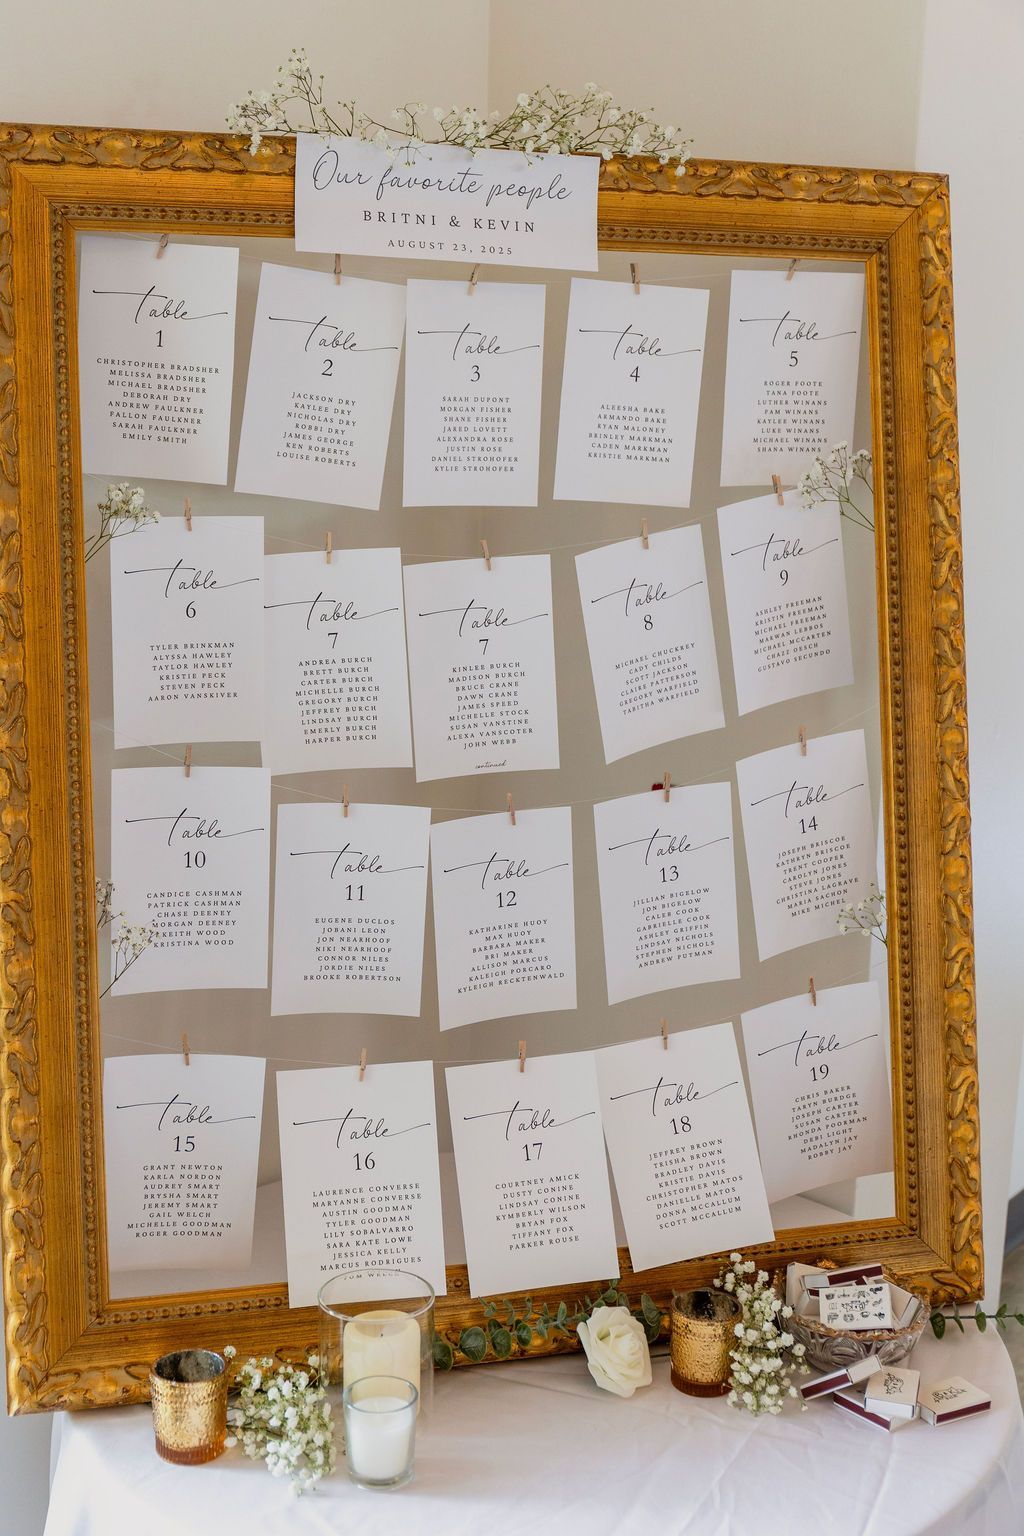 Our favorite people
BRITNI & KEVIN
AUGUST 23, 2025
Table
1
CHRISTOPHER BRADSHER
MELISSA BRADSHER
MICHAEL BRADSHER
DEBORAH DRY
ANDREW FAULKNER
FALLON FAULKNER
SARAH FAULKNER
EMILY SMITH
Table
2
JACKSON DRY
KAYLEE DRY
NICHOLAS DRY
ROBBI DRY
JAMES GEORGE
KEN ROBERTS
LOUISE ROBERTS
Table
3
SARAH DUPONT
MORGAN FISHER
SHANE FISHER
JARED LOVETT
ALEXANDRA ROSE
JUSTIN ROSE
DANIEL STROHOFER
KYLIE STROHOFER
Table
4
ALEESHA BAKE
ARMANDO BAKE
RYAN MALONEY
BRINLEY MARKMAN
CADEN MARKMAN
KRISTIE MARKMAN
Table
5
ROGER FOOTE
TANA FOOTE
LUTHER WINANS
PAM WINANS
KAYLEE WINANS
LUKE WINANS
MICHAEL WINANS
SHANA WINANS
Table
6
TYLER BRINKMAN
ALYSSA HAWLEY
TAYLOR HAWLEY
KRISTIE PECK
STEVEN PECK
AARON VANSKIVER
Table
7
ANDREA BURCH
BRETT BURCH
CARTER BURCH
MICHELLE BURCH
GREGORY BURCH
JEFFREY BURCH
LINDSAY BURCH
EMERLY BURCH
HARPER BURCH
Table
7
KINLEE BURCH
MADISON BURCH
BRUCE CRANE
DAWN CRANE
JAMES SPEED
MICHELLE STOCK
SUSAN VANSTINE
ALEXA VANSCOTER
JOHN WEBB
continued
Table
8
MICHAEL CHUCKREY
CADY CHILDS
SCOTT JACKSON
CLAIRE PATTERSON
GREGORY WARFIELD
TABITHA WARFIELD
Table
9
ASHLEY FREEMAN
KRISTIN FREEMAN
MICHAEL FREEMAN
MARWAN LEBBOS
MICHAEL MCCARTEN
CHAZZ OESCH
GUSTAVO SECUNDO
Table
10
CANDICE CASHMAN
PATRICK CASHMAN
CHASE DEENEY
MORGAN DEENEY
KEITH WOOD
KRISTINA WOOD
Table
11
EUGENE DUCLOS
JOBANI LEON
JON NEARHOOF
NIKI NEARHOOF
CONNOR NILES
JORDIE NILES
BROOKE ROBERTSON
Table
12
KATHARINE HUOY
MAX HUOY
BARBARA MAKER
BRI MAKER
ALLISON MARCUS
KALEIGH PORCARO
KYLEIGH RECKTENWALD
Table
13
JILLIAN BIGELOW
JON BIGELOW
CALEB COOK
GABRIELLE COOK
ASHLEY GRIFFIN
LINDSAY NICHOLS
STEPHEN NICHOLS
ANDREW PUTMAN
Table
14
JOSEPH BRISCOE
KATHRYN BRISCOE
TRENT COOPER
CAROLYN JONES
STEVE JONES
CHRISTINA LAGRAVE
MARIA SACHON
MIKE MICHEL
Table
15
GRANT NEWTON
KARLA NORDON
AUDREY SMART
BRYSHA SMART
JEREMY SMART
GAIL WELCH
MICHELLE GOODMAN
ROGER GOODMAN
Table
16
LAURENCE CONVERSE
MARYANNE CONVERSE
AUSTIN GOODMAN
TYLER GOODMAN
LILY SOBALVARRO
SARA KATE LOWE
JESSICA KELLY
MARCUS RODRIGUES
TOM
Table
17
COURTNEY AMICK
DUSTY CONINE
LINDSAY CONINE
KYMBERLY WILSON
BRYAN FOX
TIFFANY FOX
PARKER ROUSE
Table
18
JEFFREY BROWN
TRISHA BROWN
BRADLEY DAVIS
KRISTIE DAVIS
CHRISTOPHER MATOS
DANIELLE MATOS
DONNA MCCALLUM
SCOTT MCCALLUM
Table
19
CHRIS BAKER
TARYN BURDGE
JOSEPH CARTER
SUSAN CARTER
RHONDA POORMAN
DEBI LIGHT
MADALYN JAY
ROBBY JAY